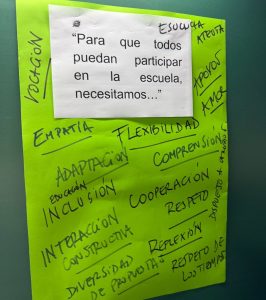 ESCUCHA
ATENTA
VOCACIÓN
"Para que todos
puedan participar
en la escuela,
necesitamos..."
APOYO
AMOR
EMPATIA
FLEXIBILIDAD
COMPRENSIÓN
ADAPTACIÓN
EDUCACIÓN
INCLUSIÓN
COOPERACIÓN
RESPETO
INTERACCIÓN
CONSTRUCTIVA
REFLEXIÓN
DIVERSIDAD
DE PROPUESTAS
RESPETO DE
LOS TIEMPOS